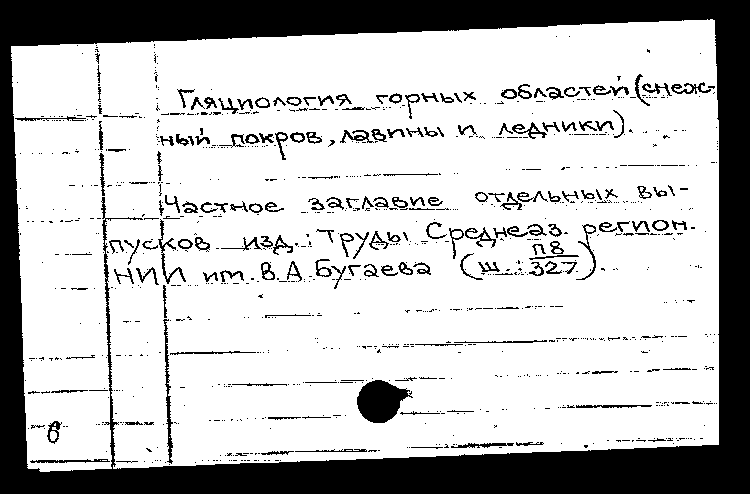 Гляциология горных областей (снеж-
ный покров, лавины и ледники).
Частное заглавие отдельных вы-
пусков изд.: Труды Среднеаз. регион.
НИИ им. В.А. Бугаева (ш.: П8/327).
в